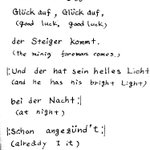 Glück auf, Glück auf,
(good luck, good luck)
der Steiger kommt.
(the minig foreman comes.)
|:Und der hat sein helles Licht
(and he has his bright Light)
bei der Nacht:|
(at night)
|:Schon angezünd't:|
(alreddy I it)